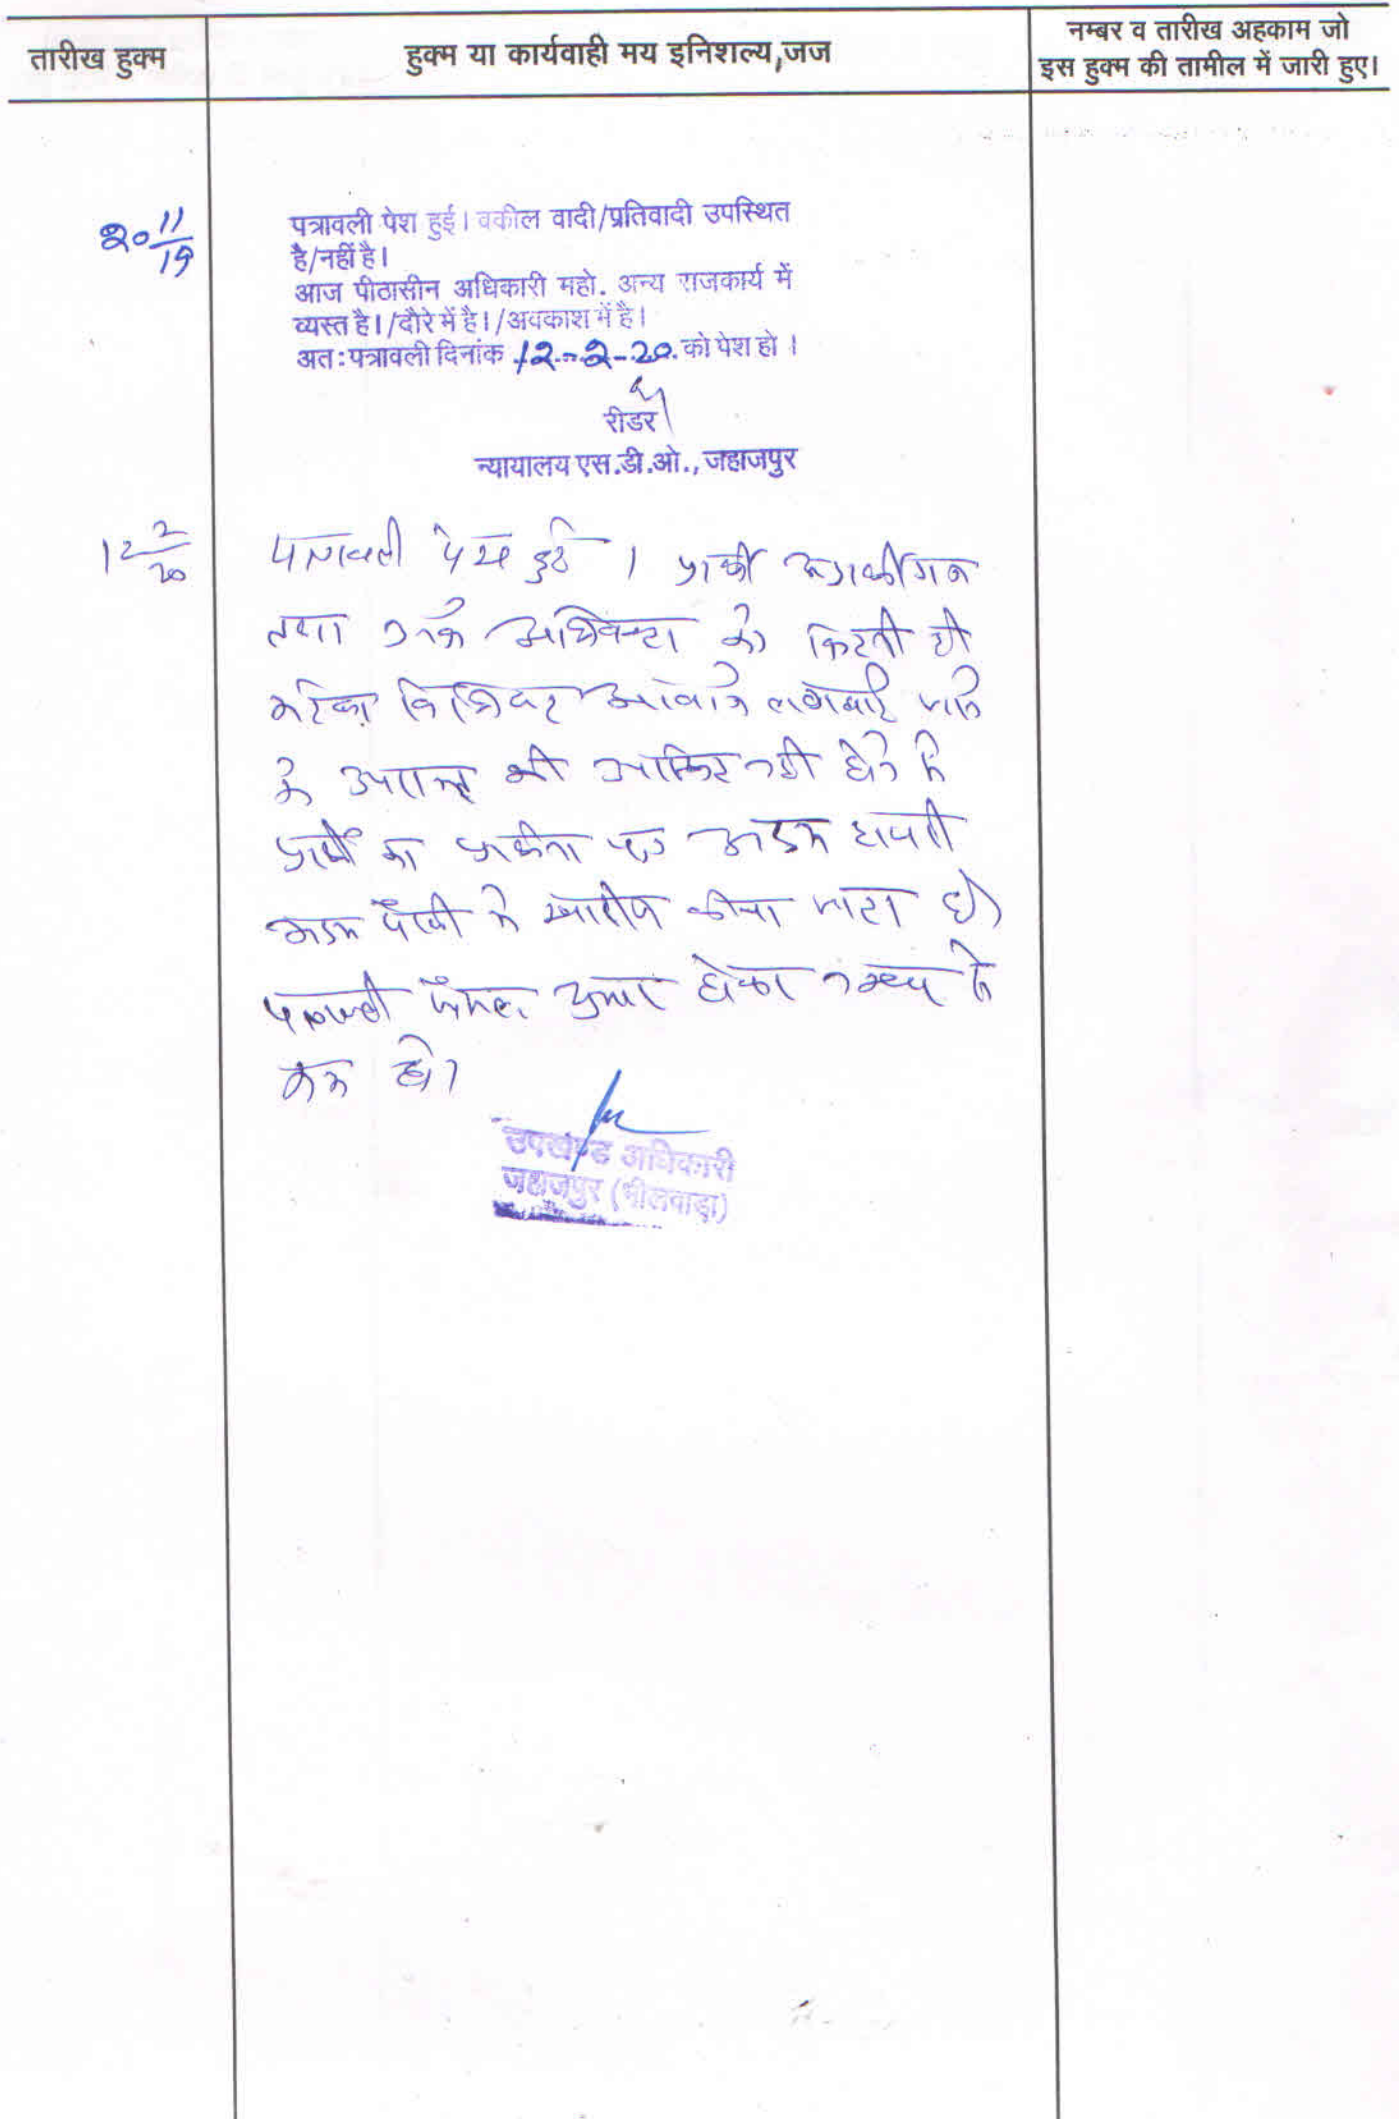 तारीख हुक्म
हुक्म या कार्यवाही मय इनिशल्य,जज
नम्बर व तारीख अहकाम जो
इस हुक्म की तामील में जारी हुए।
20 11/19
पत्रावली पेश हुई। वकील वादी/प्रतिवादी उपस्थित
है/नहीं है।
आज पीठासीन अधिकारी महो. अन्य राजकार्य में
व्यस्त है।/दौरे में है।/अवकाश में है।
अत:पत्रावली दिनांक 12-2-20 को पेश हो ।
रीडर
न्यायालय एस.डी.ओ., जहाजपुर
12 2/20
पत्रावली पेश हुई । प्रार्थी अप्रार्थीगण
तथा उनके अधिवक्ता को कितनी ही
आवाजे लगवाई जाने
के उपरान्त भी नही होने से
प्रार्थी का प्रार्थना पत्र अदम हाजरी
अदम पैरवी में खारीज कीया जाता है।
पत्रावली फैसल शुमार होकर नम्बर से
कम हो।
उपखण्ड अधिकारी
जहाजपुर (भीलवाड़ा)